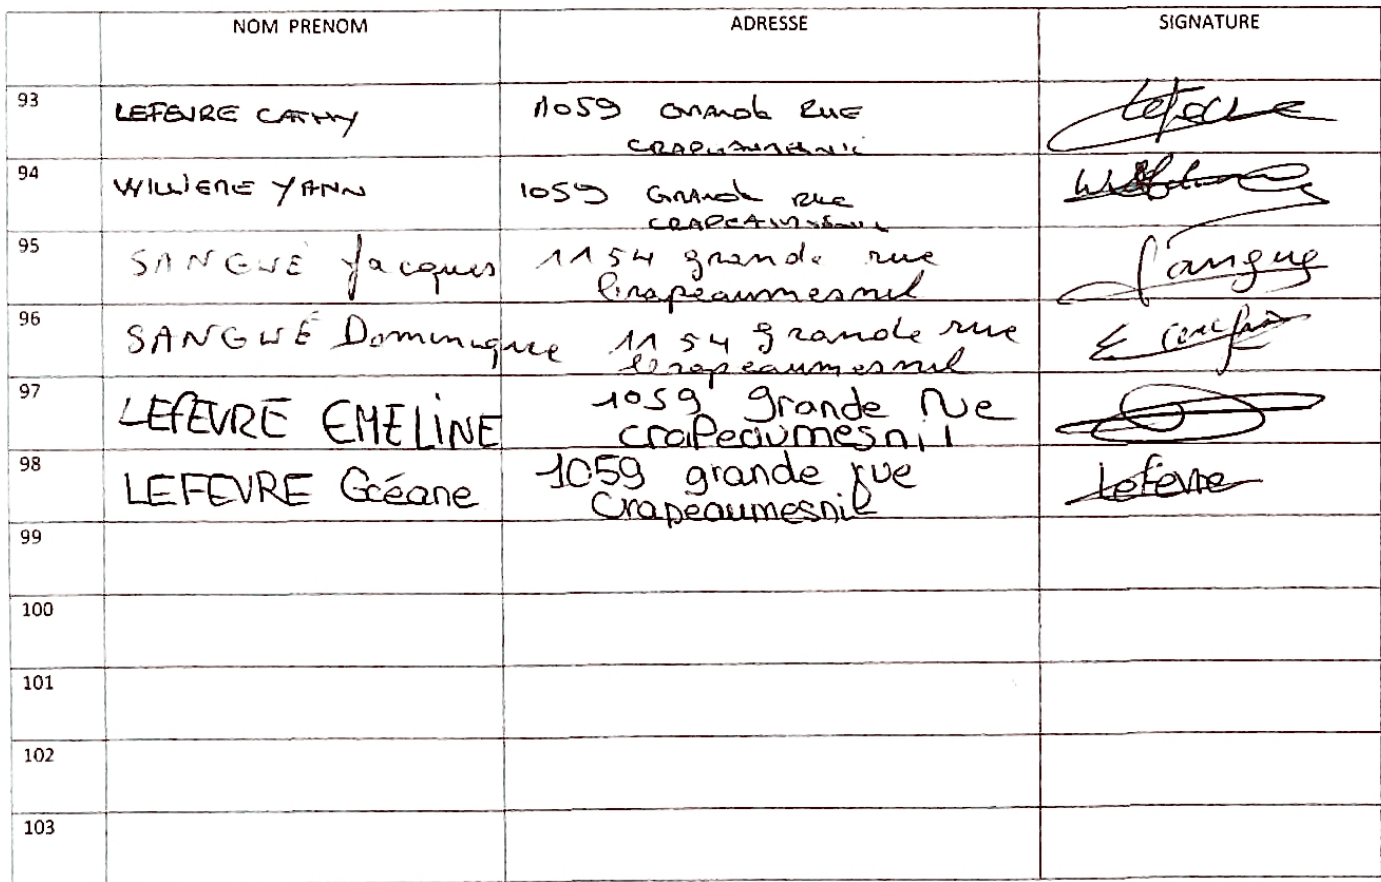 NOM PRENOM ADRESSE SIGNATURE
93 LEFEVRE CATHY 1059 GRANDE RUE
CRAPEAUMESNIL
94 WILLIERE YANN 1059 GRANDE RUE
CRAPEAUMESNIL
95 SANGUÉ Jacques 1154 grande rue Sangué
Crapeaumesnil
96 SANGUÉ Dominique 1154 grande rue
Crapeaumesnil
97 LEFEVRE EMELINE 1059 grande rue
crapeaumesnil
98 LEFEVRE Océane 1059 grande rue Lefevre
Crapeaumesnil
99
100
101
102
103